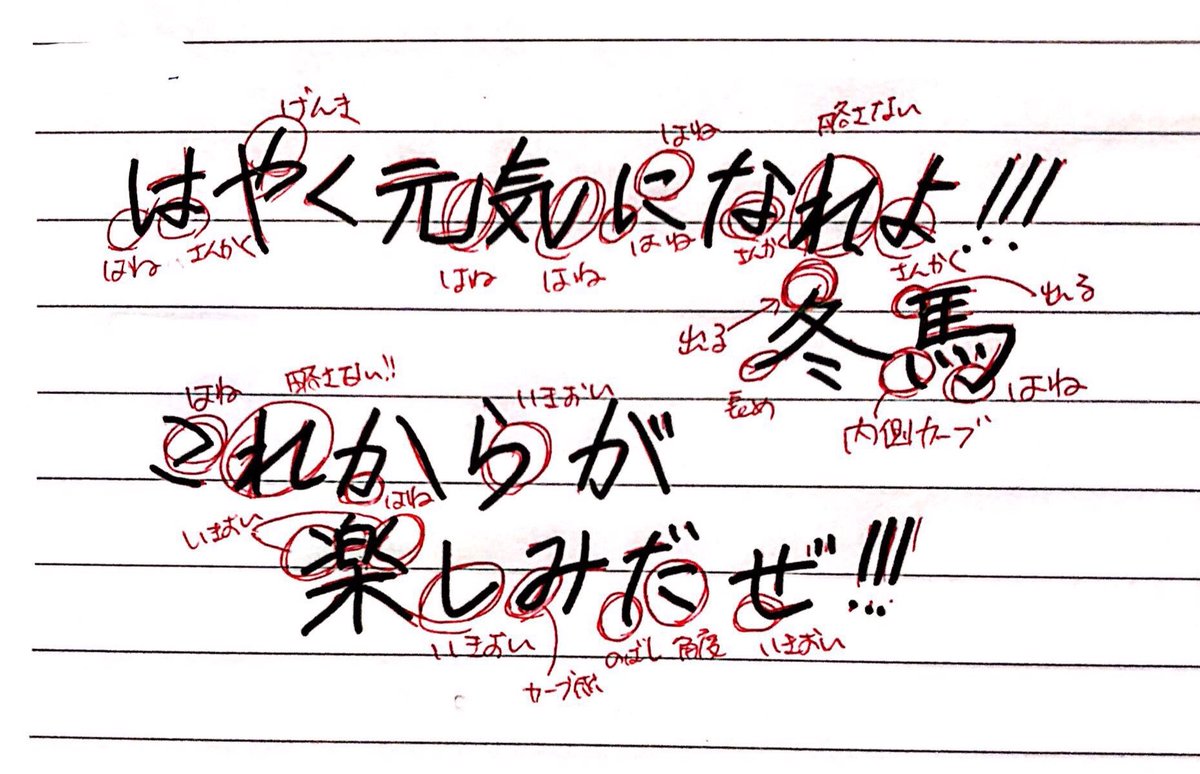 げんき
はね
略さない
はやく元気になれよ!!!
はね さんかく はね はね はね さんかく さんかく
冬馬
出る 出る
長め 内側カーブ はね
はね 略さない!! いきおい
これからが
はね
いきおい
楽しみだぜ!!!
いきおい のばし 角度 いきおい